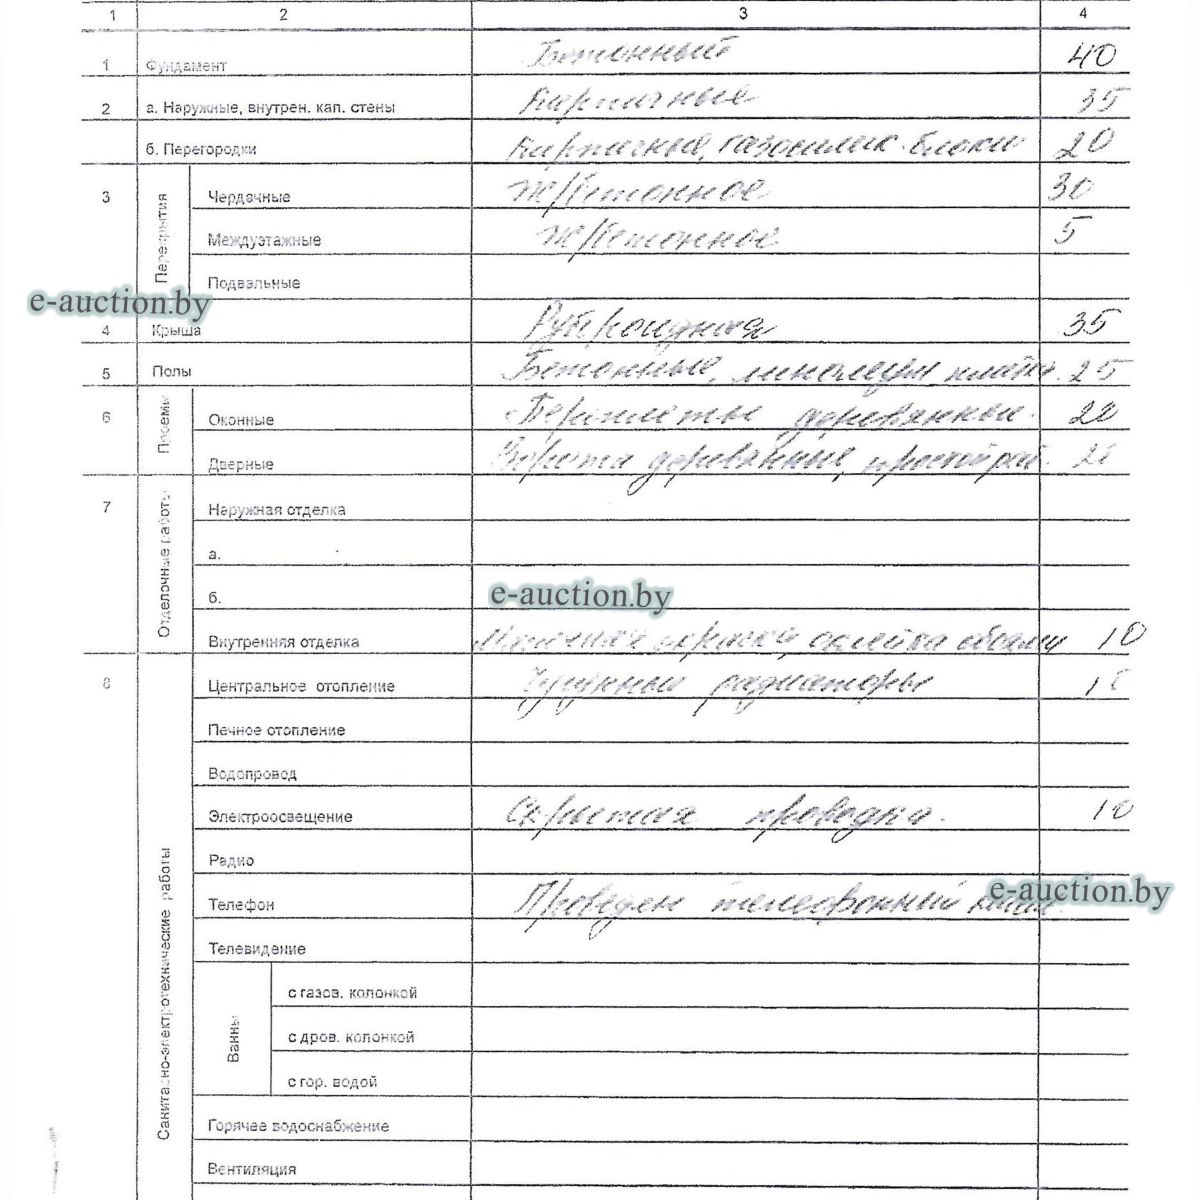 1 2 3 4
1 Фундамент Бетонный 40
2 а. Наружные, внутрен. кап. стены Кирпичные 35
б. Перегородки Кирпичные, газосилик. блоки 20
3 Перекрытия Чердачные Ж/бетонное 30
Междуэтажные Ж/бетонное 5
Подвальные
e-auction.by
4 Крыша Рубероидная 35
5 Полы Бетонные, линолеум, 25
6 Проемы Оконные Переплеты деревянные
Дверные Ворота деревянные, простой
7 Отделочные работы Наружная отделка
а.
б.
e-auction.by
Внутренняя отделка окраска, оклейка обоями 10
8 Санитарно-электротехнические работы Центральное отопление Чугунные радиаторы
Печное отопление
Водопровод
Электроосвещение Скрытая проводка. 10
Радио
Телефон Проведен телефонный
e-auction.by
Телевидение
Ванны с газов. колонкой
с дров. колонкой
с гор. водой
Горячее водоснабжение
Вентиляция